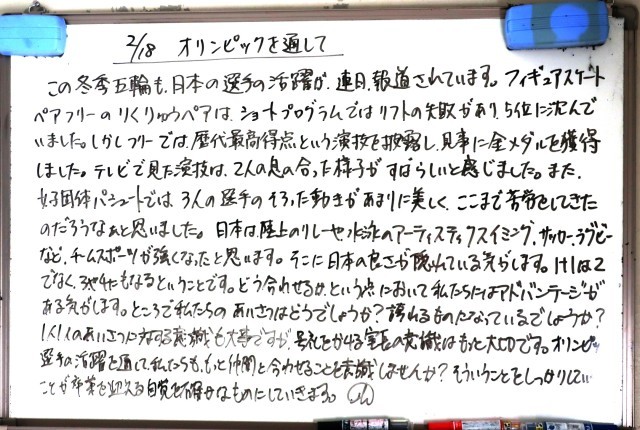 2/18 オリンピックを通して
この冬季五輪も、日本の選手の活躍が、連日、報道されています。フィギュアスケート
ペアフリーのりくりゅうペアは、ショートプログラムではリフトの失敗があり、5位に沈んで
いました。しかしフリーでは、歴代最高得点という演技を披露し、見事に金メダルを獲得
しました。テレビで見た演技は、2人の息の合った様子がすばらしいと感じました。また、
女子団体パシュートでは、3人の選手のそろった動きがあまりに美しく、ここまで苦労をしてきた
のだろうなぁと思いました。日本は、陸上のリレーや、水泳のアーティスティックスイミング、サッカー、ラグビー
など、チームスポーツが強くなったと思います。そこに日本の良さが隠れている気がします。1+1は2
でなく、3や4にもなるということです。どう合わせるか、という点において私たちにはアドバンテージが
ある気がします。ところで私たちのあいさつはどうでしょうか?誇れるものになっているでしょうか?
1人1人のあいさつに対する意識も大事ですが、号礼をかける室長の意識はもっと大切です。オリンピック
選手の活躍を通して、私たちも、もっと仲間と合わせることを意識しませんか?そういうことをしっかりしていく
ことが卒業を迎える自覚を確かなものにしていきます。